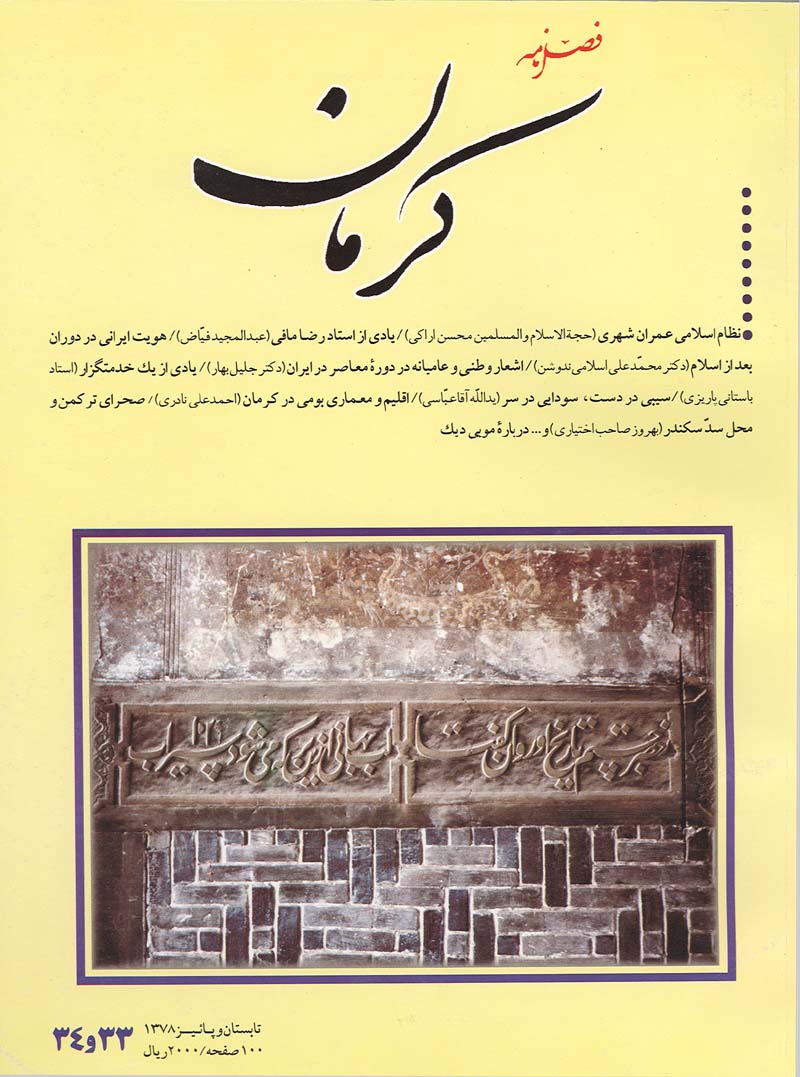 فصلنامه
کرمان
نظام اسلامی عمران شهری (حجة‌الاسلام والمسلمین محسن اراکی) / یادی از استاد رضا مافی (عبدالمجید فیّاض) / هویت ایرانی در دوران
بعد از اسلام (دکتر محمّدعلی اسلامی ندوشن) / اشعار وطنی و عامیانه در دورهٔ معاصر در ایران (دکتر جلیل بهار) / یادی از یک خدمتگزار (استاد
باستانی پاریزی) / سیبی در دست، سودایی در سر (یداللّه آقاعبّاسی) / اقلیم و معماری بومی در کرمان (احمدعلی نادری) / صحرای ترکمن و
محل سدّ سکندر (بهروز صاحب‌اختیاری) و ... دربارهٔ موبی دیک
تاریخ او روان گفتا
جهانی ازین که می‌شود سیراب
تابستان و پائیز ۱۳۷۸
۳۳ و ۳۴
۱۰۰ صفحه / ۲۰۰۰ ریال